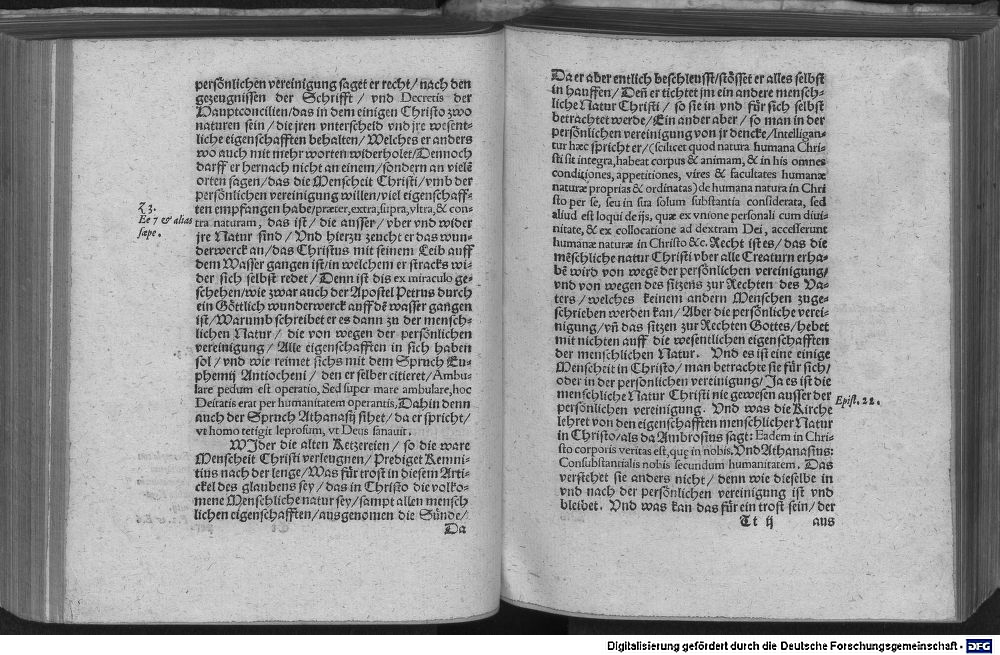 persönlichen vereinigung saget er recht/ nach den
gezeugnissen der Schrifft/ vnd Decretis der
Hauptconcilien/das in dem einigen Christo zwo
naturen sein/ die jren vnterscheid vnd jre wesent-
liche eigenschafften behalten/ Welches er anders
wo auch mit mehr worten widerholet/Dennoch
darff er hernach nicht an einem/sondern an vielē
orten sagen/das die Menscheit Christi/vmb der
persönlichen vereinigung willen/viel eigenschaff-
ten empfangen habe/præter, extra, supra, vltra, & con-
tra naturam, das ist/ die ausser/ vber vnd wider
jre Natur sind/ Vnd hierzu zeucht er das wun-
derwerck an/das Christus mit seinem Leib auff
dem Wasser gangen ist/in welchem er stracks wi-
der sich selbst redet/ Denn ist dis ex miraculo ge-
schehen/wie zwar auch der Apostel Petrus durch
ein Göttlich wunderwerck auff dē wasser gangen
ist/Warumb schreibet er es dann zu der mensch-
lichen Natur/ die von wegen der persönlichen
vereinigung/ Alle eigenschafften in sich haben
sol/ vnd wie reimet sichs mit dem Spruch Eu-
phemij Antiocheni/ den er selber citieret/Ambu-
lare pedum est operatio, Sed super mare ambulare, hoc
Deitatis erat per humanitatem operantis, Dahin denn
auch der Spruch Athanasij sihet/ da er spricht/
vt homo tetigit leprosum, vt Deus sanauit.
WJder die alten Ketzereien/ so die ware
Menscheit Christi verleugnen/ Prediget Kemni-
tius nach der lenge/Was für trost in diesem Arti-
ckel des glaubens sey/ das in Christo die volko-
mene Menschliche natur sey/sampt allen mensch
lichen eigenschafften/ausgenomen die Sünde/
Da
Z 3.
Ee 7 & alias
sæpe.
Da er aber entlich beschleusst/stösset er alles selbst
in hauffen/ Deñ er tichtet jm ein andere mensch-
liche Natur Christi/ so sie in vnd für sich selbst
betrachtet werde/Ein ander aber/ so man in der
persönlichen vereinigung von jr dencke/Intelligan-
tur hæc spricht er/(scilicet quod natura humana Chri-
sti sit integra, habeat corpus & animam, & in his omnes
conditiones, appetitiones, vires & facultates humanæ
naturæ proprias & ordinatas) de humana natura in Chri
sto per se, seu in sua solum substantia considerata, sed
aliud est loqui de ijs, quæ ex vnione personali cum diui-
nitate, & ex collocatione ad dextram Dei, accesserunt
humanæ naturæ in Christo &c. Recht ist es/ das die
mēschliche natur Christi vber alle Creaturn erha-
bē wird von wegē der persönlichen vereinigung/
vnd von wegen des sitzens zur Rechten des Va-
ters/ welches keinem andern Menschen zuge-
schrieben werden kan/ Aber die persönliche verei-
nigung/ vñ das sitzen zur Rechten Gottes/ hebet
mit nichten auff die wesentlichen eigenschafften
der menschlichen Natur. Vnd es ist eine einige
Menscheit in Christo/ man betrachte sie für sich/
oder in der persönlichen vereinigung/ Ja es ist die
menschliche Natur Christi nie gewesen ausser der
persönlichen vereinigung. Vnd was die Kirche
lehret von den eigenschafften menschlicher Natur
in Christo/als da Ambrosius sagt: Eadem in Chri-
sto corporis veritas est, quę in nobis. Vnd Athanasius:
Consubstantialis nobis secundum humanitatem. Das
verstehet sie anders nicht/ denn wie dieselbe in
vnd nach der persönlichen vereinigung ist vnd
bleibet. Vnd was kan das für ein trost sein/ der
Tt ij aus
Epist. 22.
Digitalisierung gefördert durch die Deutsche Forschungsgemeinschaft - DFG